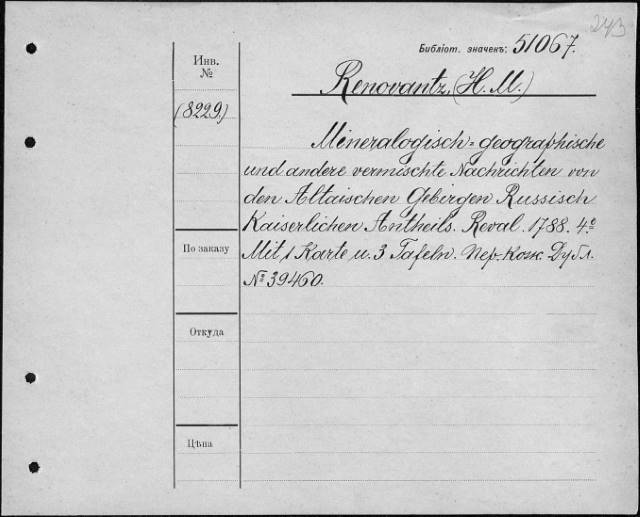 243
Библіот. значекъ: 51067.
Инв.
№
Renovantz, (H. M.)
(8229.)
Mineralogisch-geographische
und andere vermischte Nachrichten von
den Altaischen Gebirgen Russisch
Kaiserlichen Antheils. Reval. 1788. 4º
По заказу
Mit 1 Karte u. 3 Tafeln. Пер. Кож. Дубл.
№ 39460.
Откуда
Цѣна